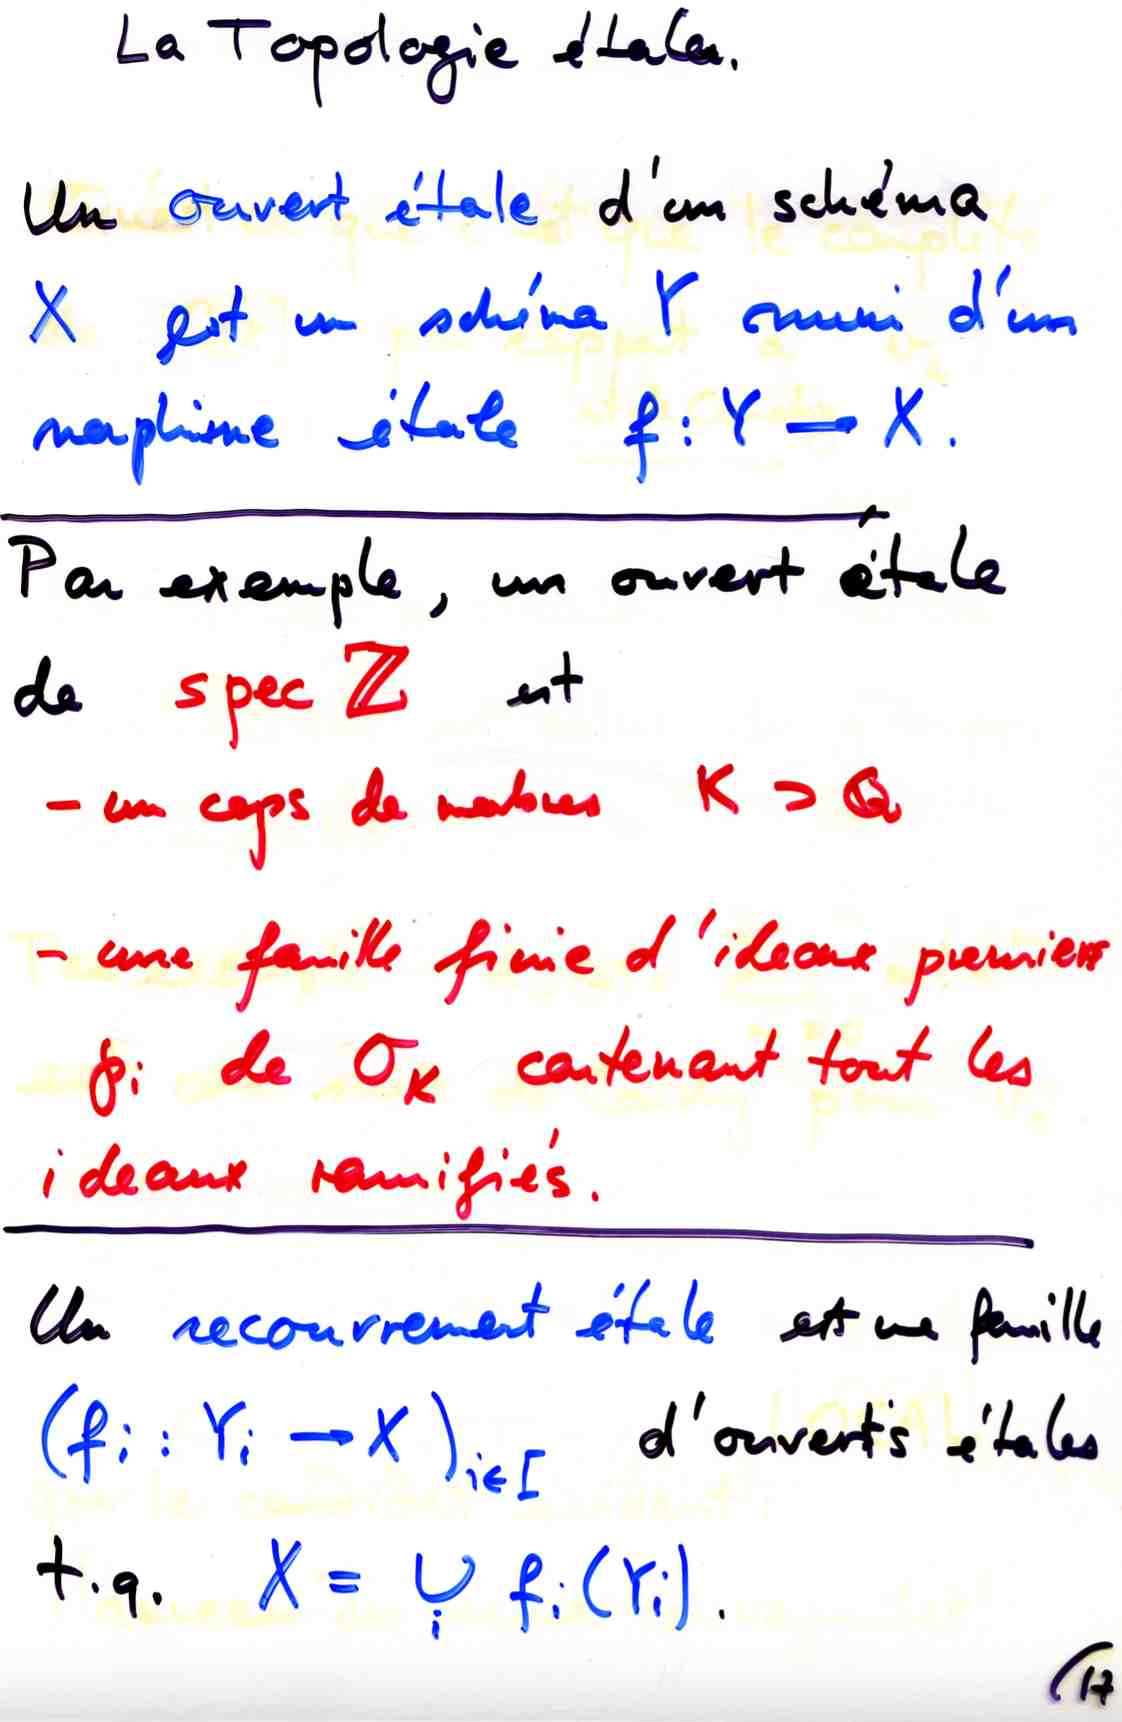 La Topologie étale.
Un ouvert étale d'un schéma
X est un schéma Y muni d'un
morphisme étale f : Y → X.
Par exemple, un ouvert étale
de spec ℤ est
- un corps de nombres K ⊃ ℚ
- une famille finie d'ideaux premiers
℘i de OK contenant tout les
ideaux ramifiés.
Un recouvrement étale est une famille
(fi : Yi → X)i∈I d'ouverts étales
t.q. X = ∪i fi(Yi).
(17